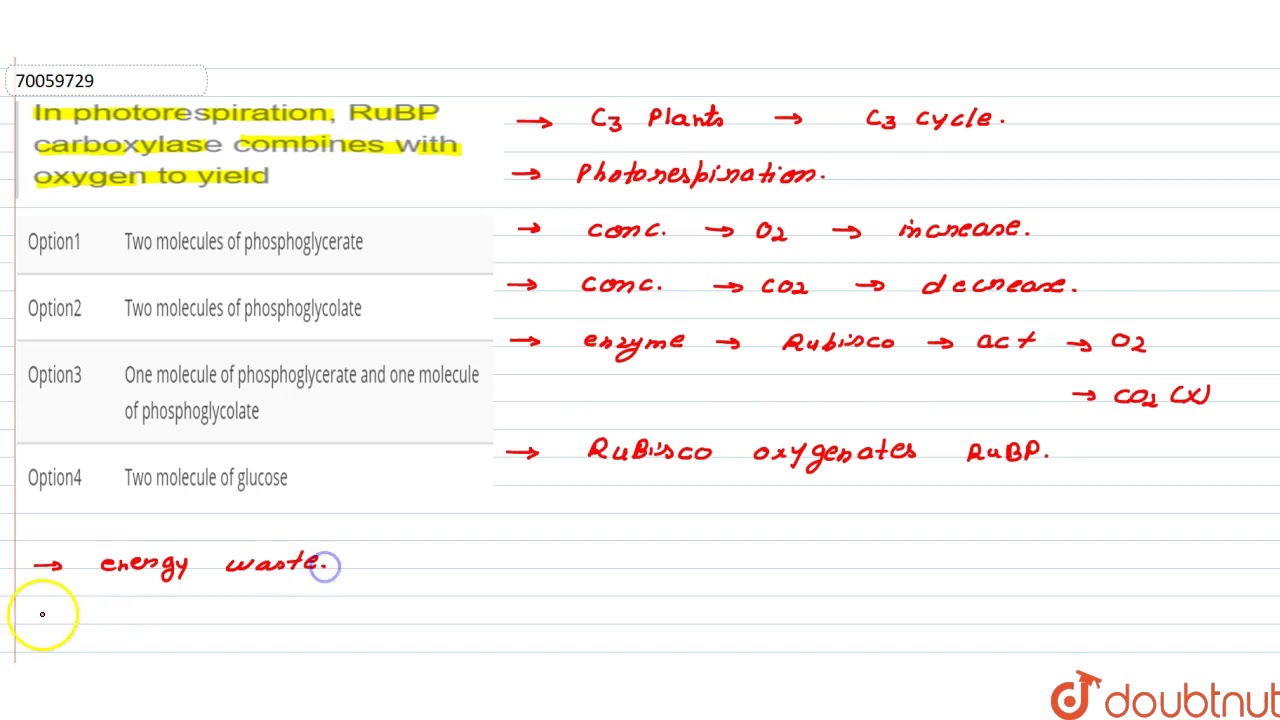 70059729
In photorespiration, RuBP
carboxylase combines with
oxygen to yield
Option1 Two molecules of phosphoglycerate
Option2 Two molecules of phosphoglycolate
Option3 One molecule of phosphoglycerate and one molecule
of phosphoglycolate
Option4 Two molecule of glucose
→ energy waste.
→ C3 Plants → C3 cycle.
→ Photorespiration.
→ conc. → O2 → increase.
→ conc. → CO2 → decrease.
→ enzyme → Rubisco → act → O2
→ CO2 (x)
→ RuBisco oxygenates RuBP.
doubtnut